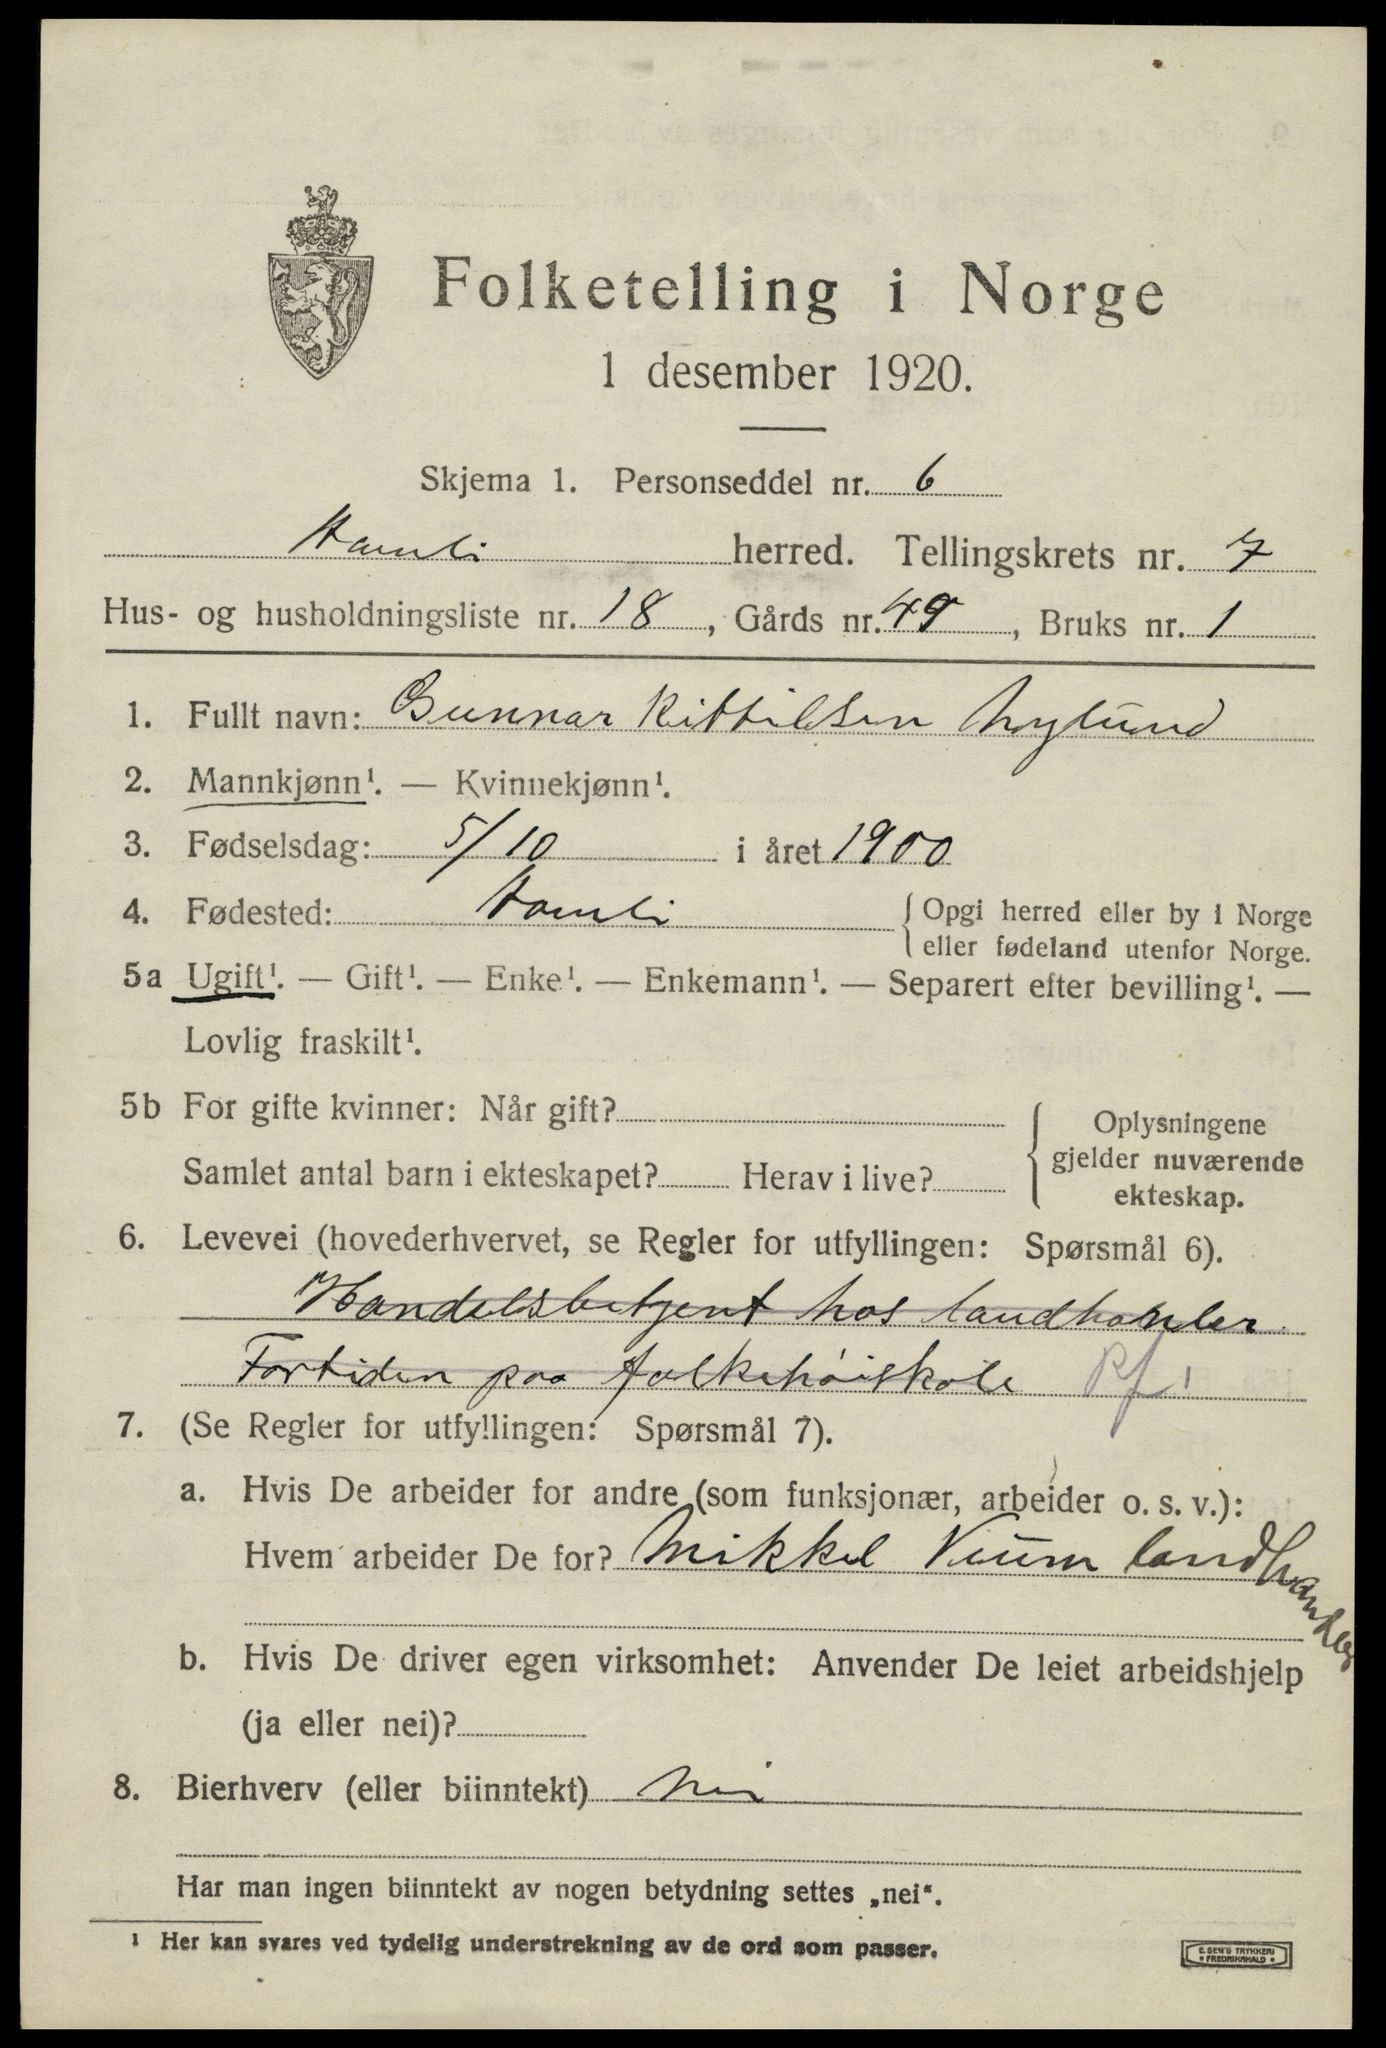 Folketelling i Norge
1 desember 1920.
Skjema 1. Personseddel nr. 6
Hamli herred. Tellingskrets nr. 7
Hus- og husholdningsliste nr. 18, Gårds nr. 49, Bruks nr. 1
1. Fullt navn: Gunnar Kittilsen Nylund
2. Mannkjønn¹. — Kvinnekjønn¹.
3. Fødselsdag: 5/10 i året 1900
4. Fødested: Hamli {Opgi herred eller by i Norge
eller fødeland utenfor Norge.
5a Ugift¹. — Gift¹. — Enke¹. — Enkemann¹. — Separert efter bevilling¹. —
Lovlig fraskilt¹.
5b For gifte kvinner: Når gift?
Samlet antal barn i ekteskapet? Herav i live?
Oplysningene
gjelder nuværende
ekteskap.
6. Levevei (hovederhvervet, se Regler for utfyllingen: Spørsmål 6).
Handelsbetjent hos landhanler
Fortiden paa folkehöiskole Pf 1
7. (Se Regler for utfyllingen: Spørsmål 7).
a. Hvis De arbeider for andre (som funksjonær, arbeider o. s. v.):
Hvem arbeider De for? Mikkel Veum landhandler
b. Hvis De driver egen virksomhet: Anvender De leiet arbeidshjelp
(ja eller nei)?
8. Bierhverv (eller biinntekt) nei
Har man ingen biinntekt av nogen betydning settes „nei“.
¹ Her kan svares ved tydelig understrekning av de ord som passer.
E. SEM'S TRYKKERI
• FREDRIKSHALD •